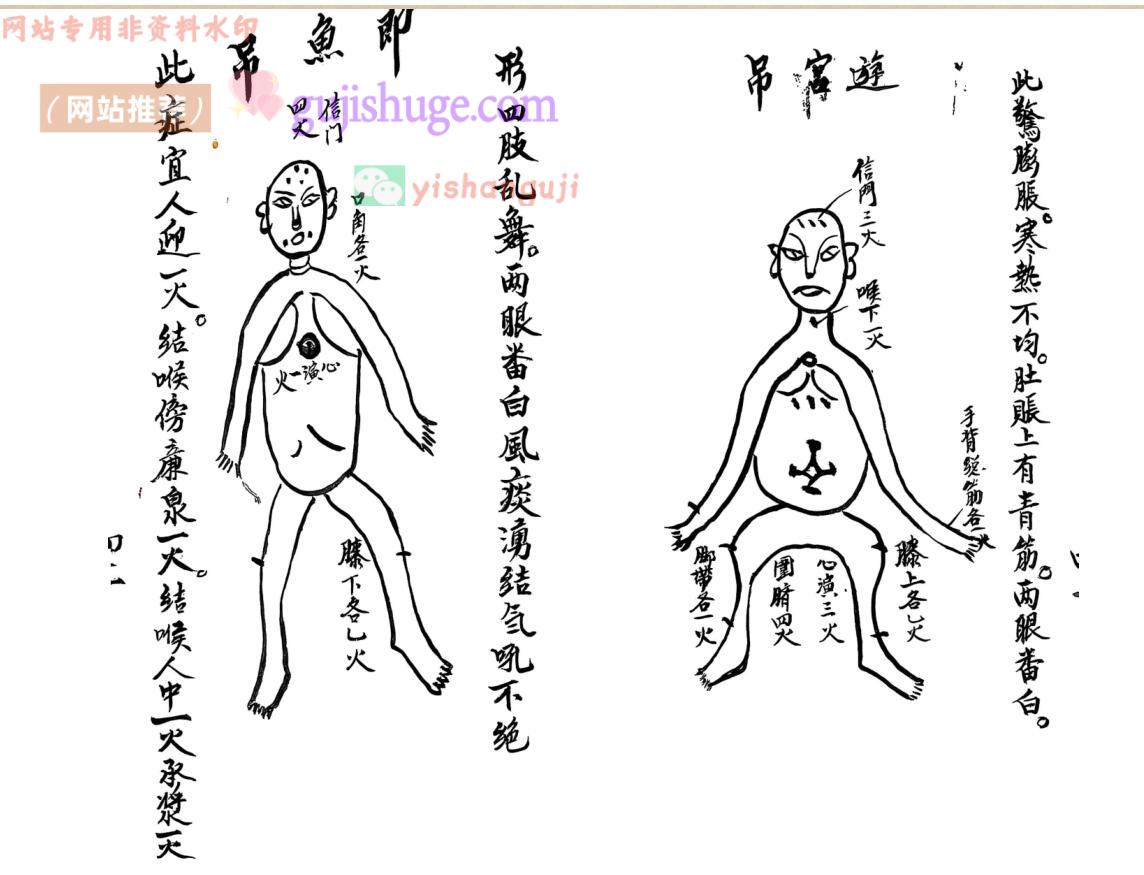 此驚膨脹。寒熱不均。肚賬上有青筋。两眼番白。
遊宮吊
信門三火
喉下一火
手背总筋各一火
膝上各乚火
心演三火
圍臍四火
脚帶各一火
形四肢乱舞。两眼番白風痰湧结气吼不绝
即魚吊
信门
四火
口角各一火
心演一火
膝下各乚火
此症宜人迎一火。结喉傍亷泉一火。结喉人中一火承漿一火
网站专用非资料水印
（网站推荐）
gujishuge.com
yishanguji